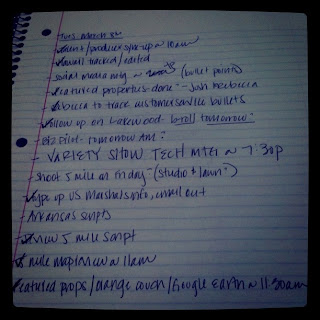 Tues March 8th
- talent/producer sync-up ~ 10am
- email tracked/edited
social media mtg ~ (bullet points)
- featured properties-done - Josh Rebecca
- Rebecca to track customer service bullets
- follow up on Lakewood- b-roll tomorrow
- Biz Pilot- tomorrow am:
- VARIETY SHOW TECH MTG ~ 7:30p
- Shoot 5 mile on Friday "(studio & lawn")
- type up US Marshals info, email out
- Arkansas scripts
- 5 mile script
5 mile map/view ~ 11am
featured props/orange couch/Google Earth ~ 11:30am